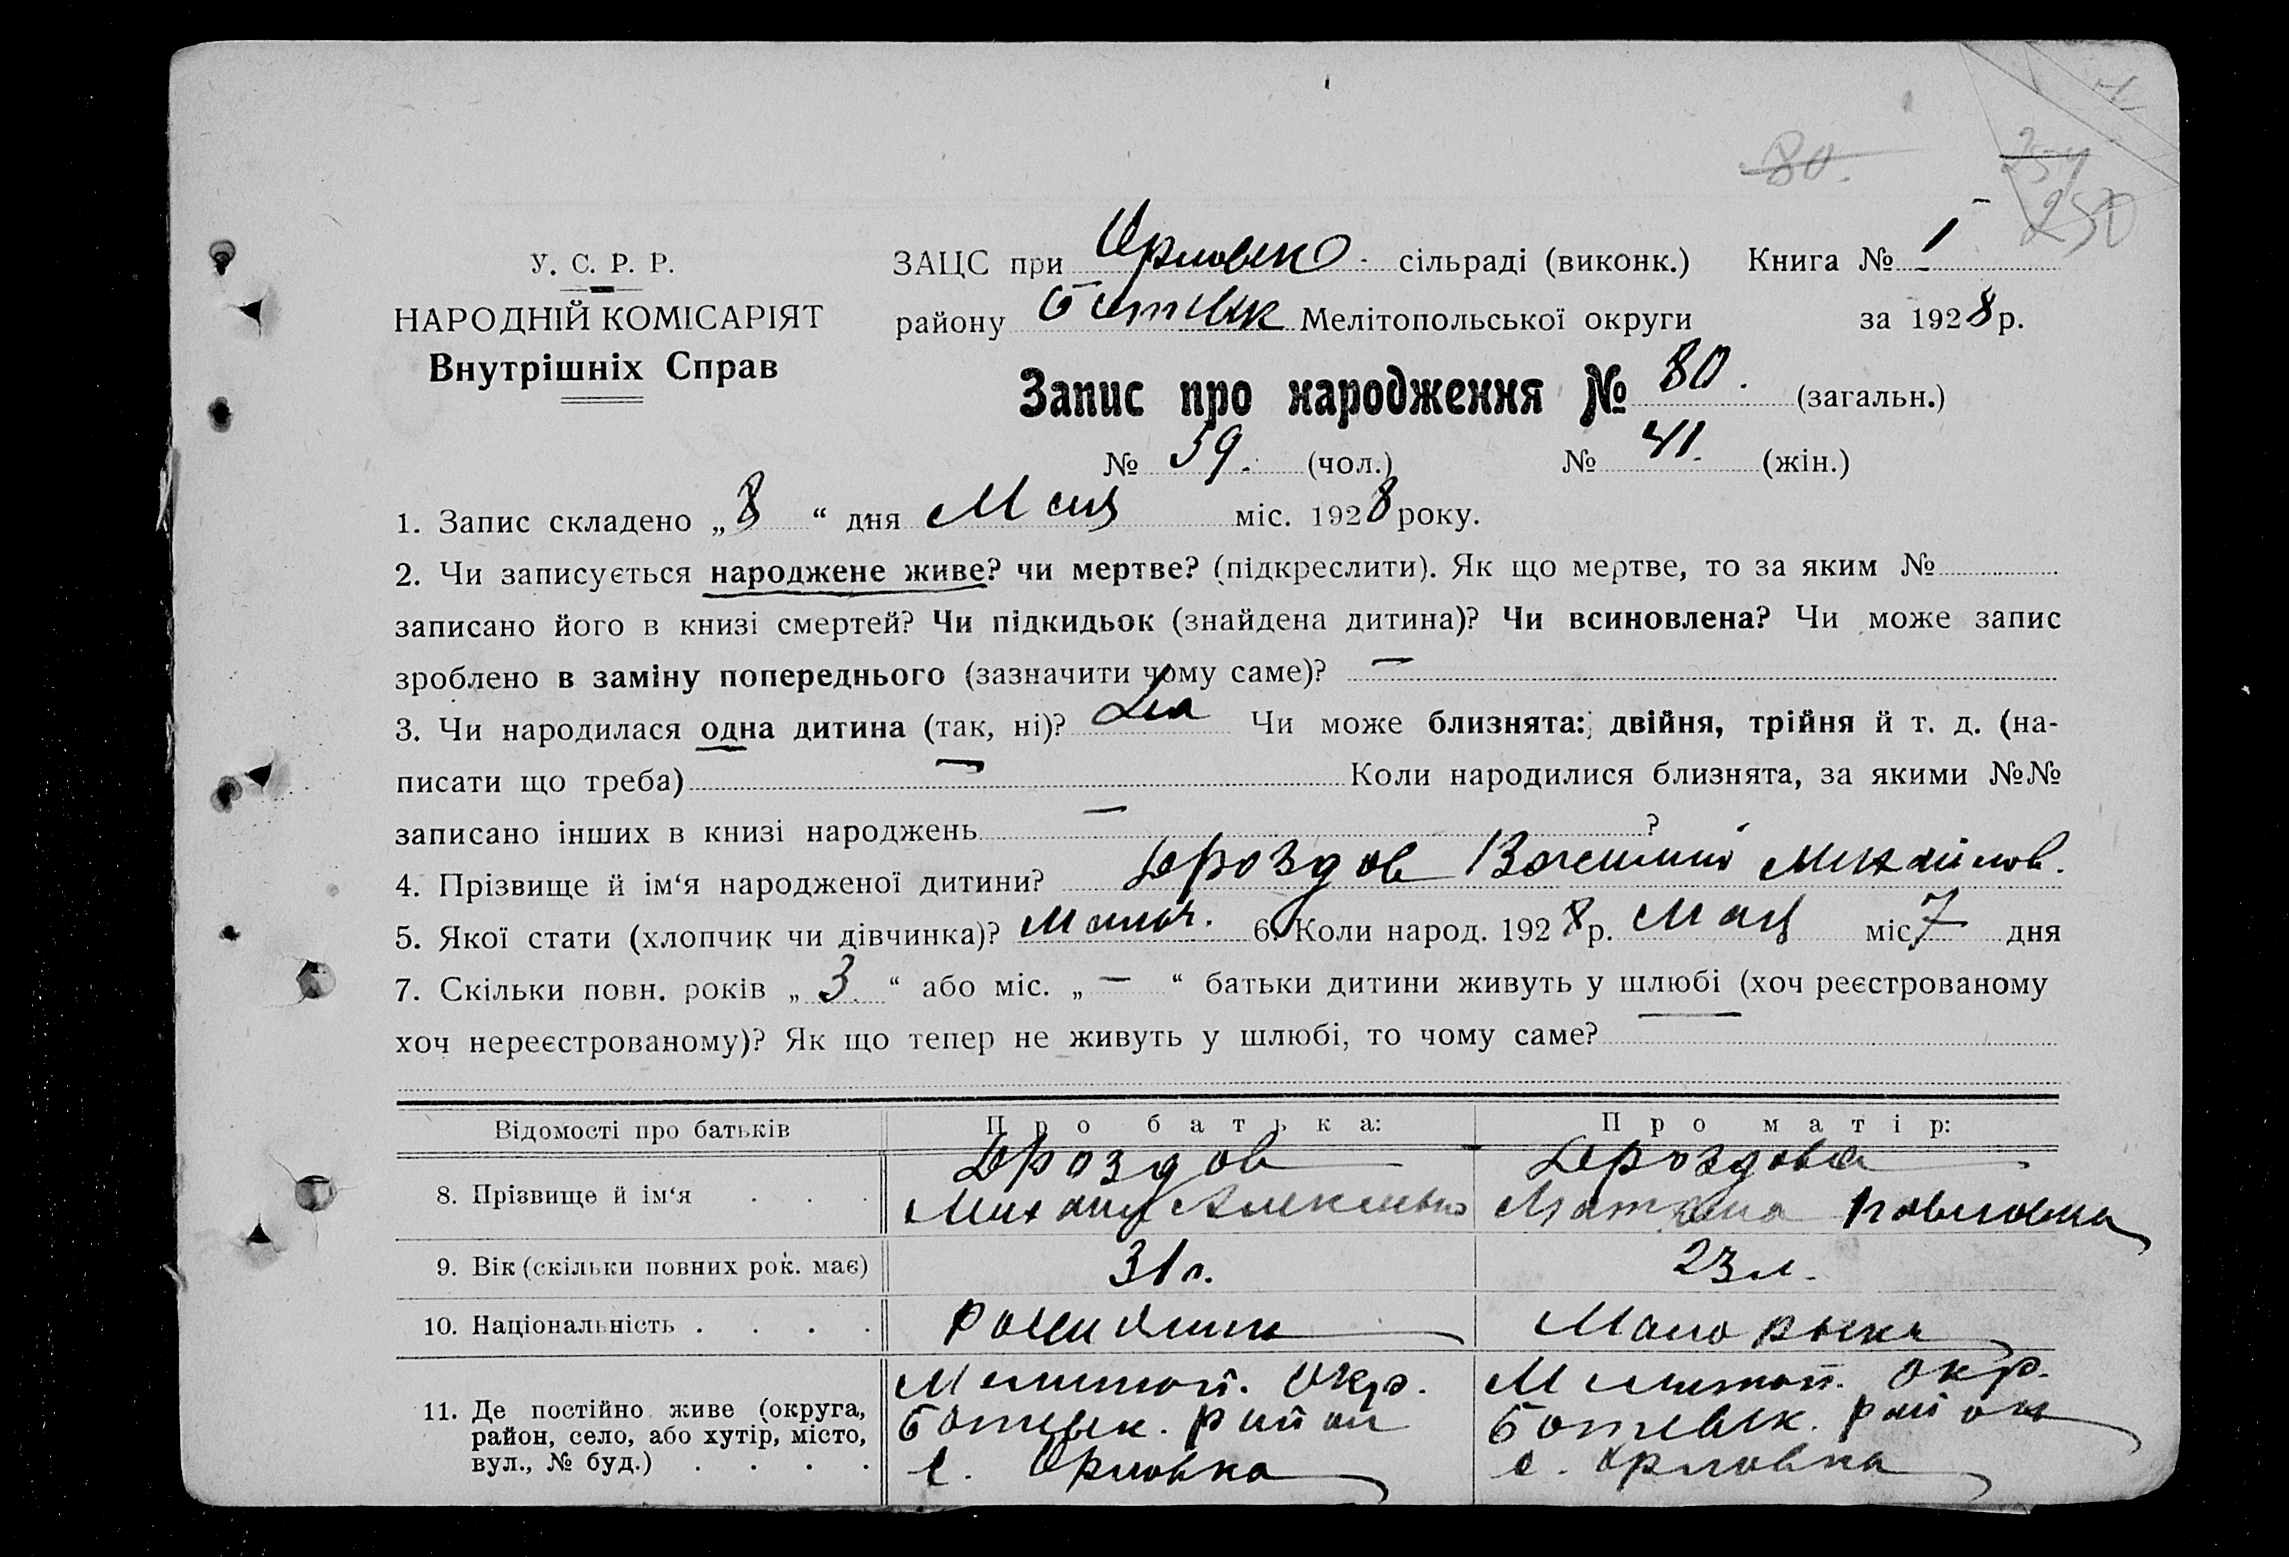 80.
254
250
У. С. Р. Р.
НАРОДНІЙ КОМІСАРІЯТ
Внутрішніх Справ
ЗАЦС при Орловск сільраді (виконк.) Книга № 1
району Ботевск Мелітопольської округи за 1928 р.
Запис про народження № 80. (загальн.)
№ 39. (чол.) № 41. (жін.)
1. Запис складено „8“ дня Мая міс. 1928 року.
2. Чи записується народжене живе? чи мертве? (підкреслити). Як що мертве, то за яким №
записано його в книзі смертей? Чи підкидьок (знайдена дитина)? Чи всиновлена? Чи може запис
зроблено в заміну попереднього (зазначити чому саме)? —
3. Чи народилася одна дитина (так, ні)? Да Чи може близнята: двійня, трійня й т. д. (на-
писати що треба) — Коли народилися близнята, за якими №№
записано інших в книзі народжень — ?
4. Прізвище й ім‘я народженої дитини? Дроздов Василий Михайлов.
5. Якої стати (хлопчик чи дівчинка)? Мальч. 6. Коли народ. 1928 р. Мая міс 7 дня
7. Скільки повн. років „3.“ або міс. „—“ батьки дитини живуть у шлюбі (хоч реєстрованому
хоч нереєстрованому)? Як що тепер не живуть у шлюбі, то чому саме? —
Відомості про батьків Про батька: Про матір:
8. Прізвище й ім‘я . . . Дроздов Дроздова
Михаил Алексеев Матрена Павловна
9. Вік (скільки повних рок. має) 31 л. 23 л.
10. Національність . . . . Россиянин Малорыска
11. Де постійно живе (округа, район, село, або хутір, місто, вул., № буд.) . . . .
Мелитоп. Окр. Мелитоп. Окр.
Ботевск. район Ботевск. район
с. Орловка с. Орловка